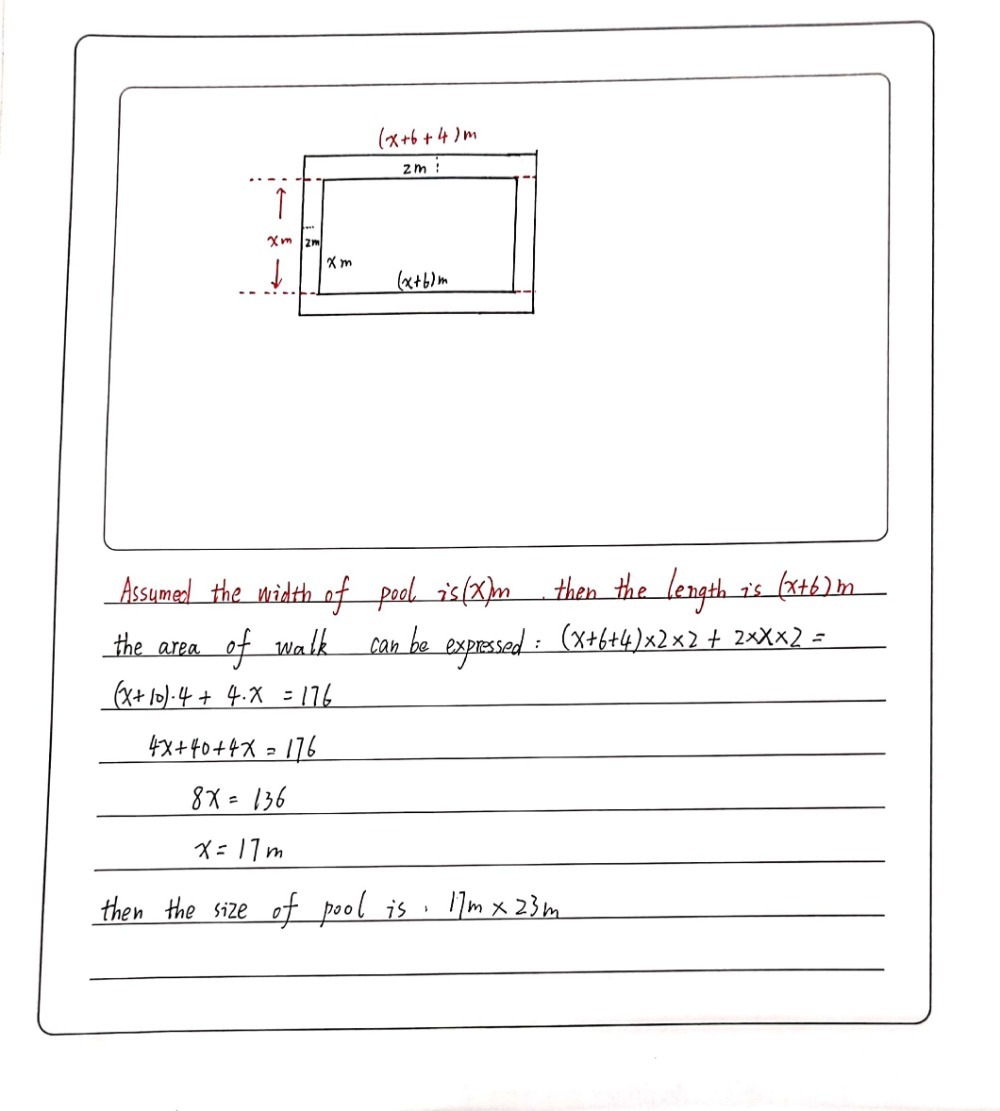 (x+6+4)m
2m
xm
2m
xm
(x+6)m
Assumed the width of pool is(x)m . then the length is (x+6)m
the area of walk can be expressed : (x+6+4)×2×2 + 2×x×2 =
(x+10)·4 + 4·x = 176
4x+40+4x = 176
8x = 136
x = 17m
then the size of pool is . 17m × 23m